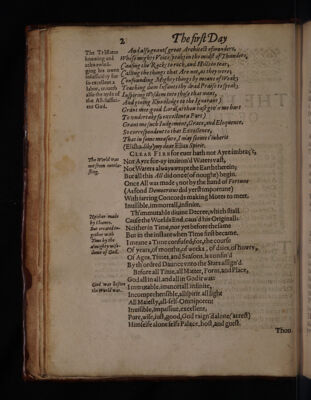 2
The first Day
And also great Architect of wonders,
Whose mighty Voice speaks in the midst of Thunders,
Causing the Rocks to rock, and Hills to tear;
Calling the things that Are not, as they were;
Confounding Mighty things by means of Weak;
Teaching dum Infants thy dread Praise to speak;
Inspiring Wisdom into those that want,
And giving Knowledge to the Ignorant;
Grant mee good Lord, as thou hast giv'n me hart
To undertake so excellent a Part)
Grant me such Judgement, Grace, and Eloquence,
So correspondent to that Excellence,
That in some measure, I may seem t'inherit
(Elisha-like) my dear Elias Spirit.
CLEAR FIRE for ever hath not Ayre imbrac't,
Nor Ayre for-ay inviron'd Waters vast,
Nor Waters alwayes wrapt the Earth therein;
But all this All did once (of nought) begin.
Once All was made; not by the hand of Fortune
(As fond Democritus did yerst importune)
With jarring Concords making Motes to meet,
Invisible, immortall, infinite.
Th'immutable divine Decree, which shall
Cause the Worlds End, caus'd his Originall:
Neither in Time, nor yet before the same
But in the instant when Time first became.
I mean a Time confused; for, the course
Of years, of months, of weeks, of daies, of howrs,
Of Ages, Times, and Seasons, is confin'd
By th'ordred Daunce unto the Stars assign'd.
Before all Time, all Matter, Form, and Place,
God all in all, and all in God it was:
Immutable, immortall, infinite,
Incomprehensible, all spirit, all light
All Majesty, all-self-Omnipotent
Invisible, impassive, excellent,
Pure, wise, just, good, God raign'd alone (at rest)
Himselfe alone selfs Palace, host, and guest.
Thou
The Translator
knowing and
acknowledging
his own
insufficiency for
so excellent a
labor, craveth
also the ayde of
the All-sufficient
God.
The World was
not from everlasting.
Neither made
by chance:
But created together
with
Time by the
almighty wisdome
of God.
God was before
the World was.